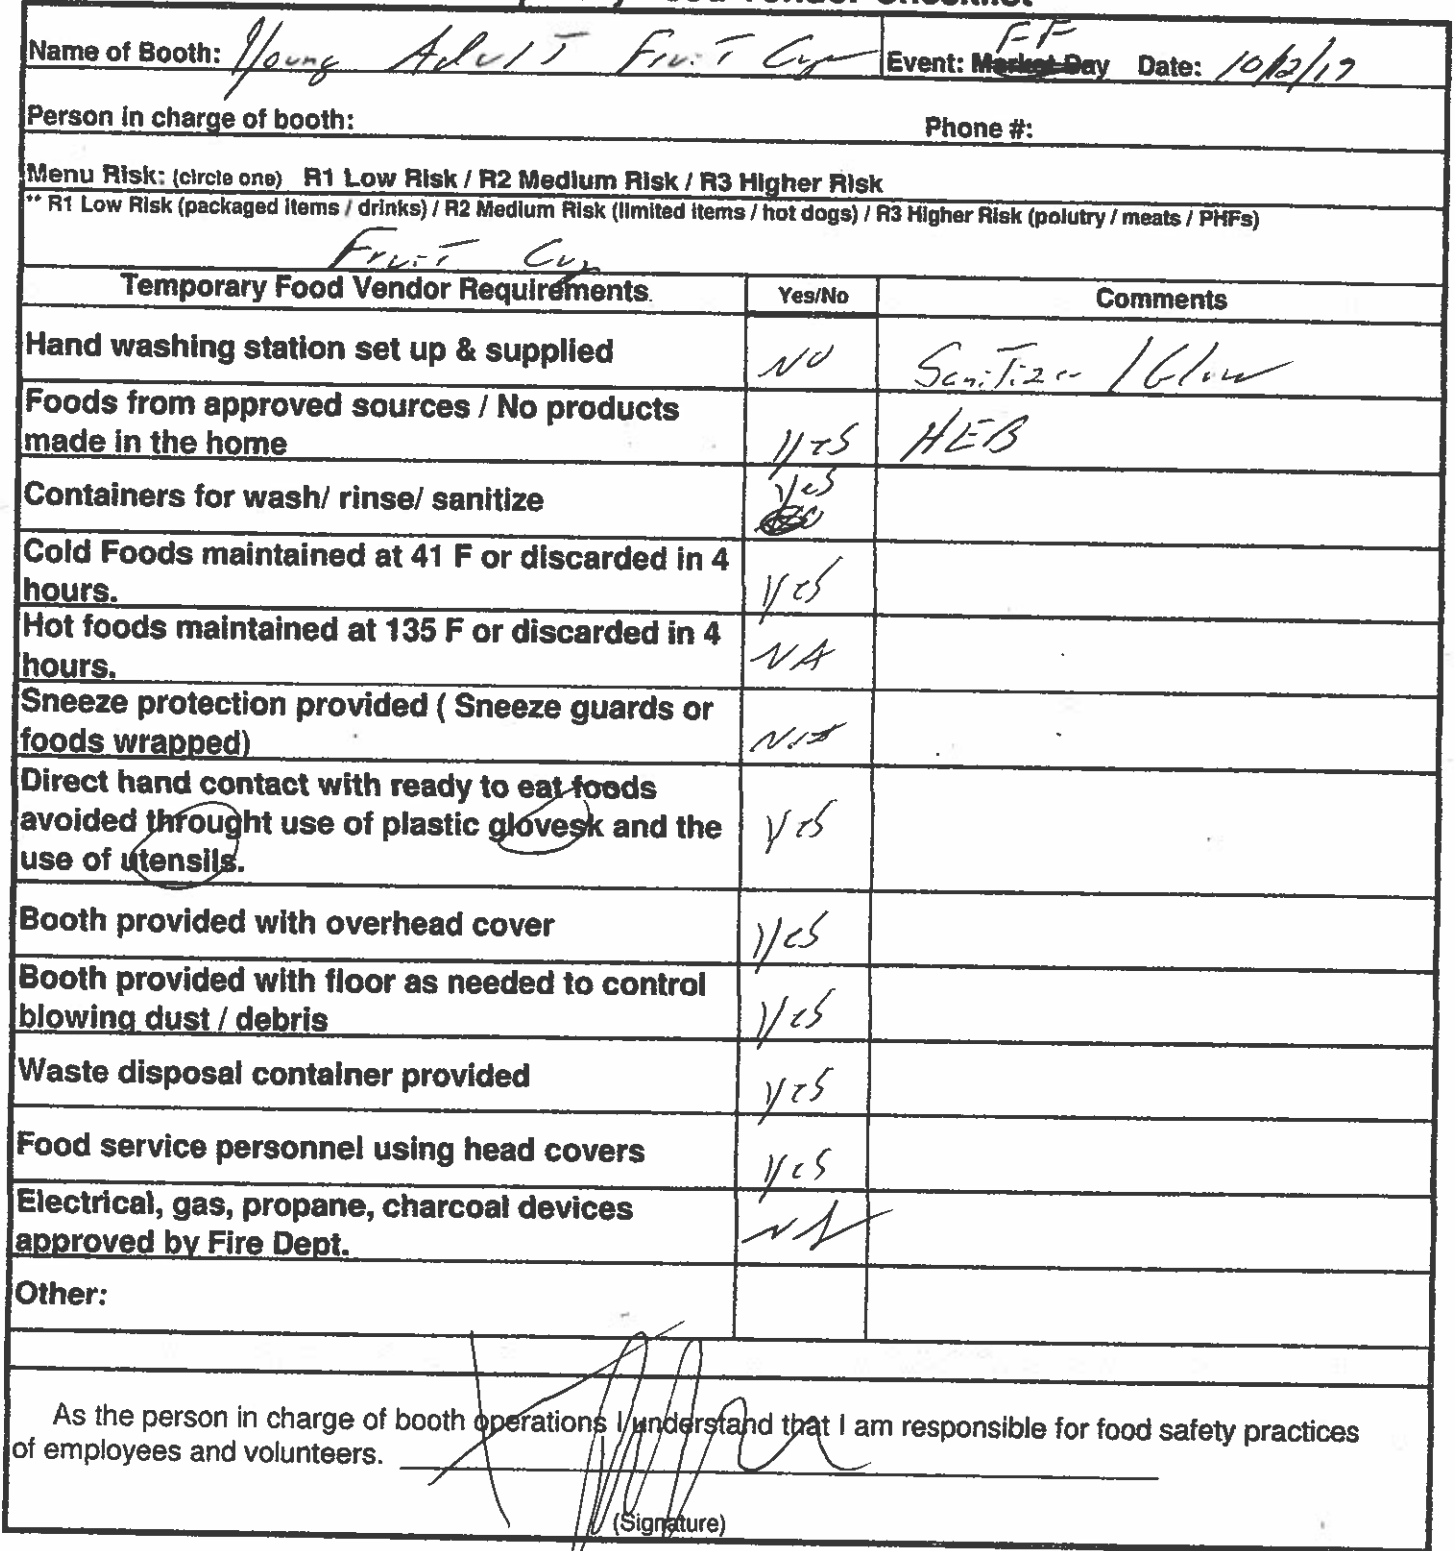 Vendor Checklist
Name of Booth: Young Adult Fruit Cup Event: Market Day FF Date: 10/12/17
Person in charge of booth: Phone #:
Menu Risk: (circle one) R1 Low Risk / R2 Medium Risk / R3 Higher Risk
** R1 Low Risk (packaged items / drinks) / R2 Medium Risk (limited items / hot dogs) / R3 Higher Risk (polutry / meats / PHFs)
Fruit Cup
Temporary Food Vendor Requirements. Yes/No Comments
Hand washing station set up & supplied NO Sanitizer / Glov
Foods from approved sources / No products
made in the home Yes HEB
Containers for wash/ rinse/ sanitize Yes
Cold Foods maintained at 41 F or discarded in 4
hours. Yes
Hot foods maintained at 135 F or discarded in 4
hours. NA
Sneeze protection provided ( Sneeze guards or
foods wrapped) NA
Direct hand contact with ready to eat foods
avoided throught use of plastic glovesk and the
use of utensils. Yes
Booth provided with overhead cover Yes
Booth provided with floor as needed to control
blowing dust / debris Yes
Waste disposal container provided Yes
Food service personnel using head covers Yes
Electrical, gas, propane, charcoal devices
approved by Fire Dept. NA
Other:
As the person in charge of booth operations I understand that I am responsible for food safety practices
of employees and volunteers.
(Signature)